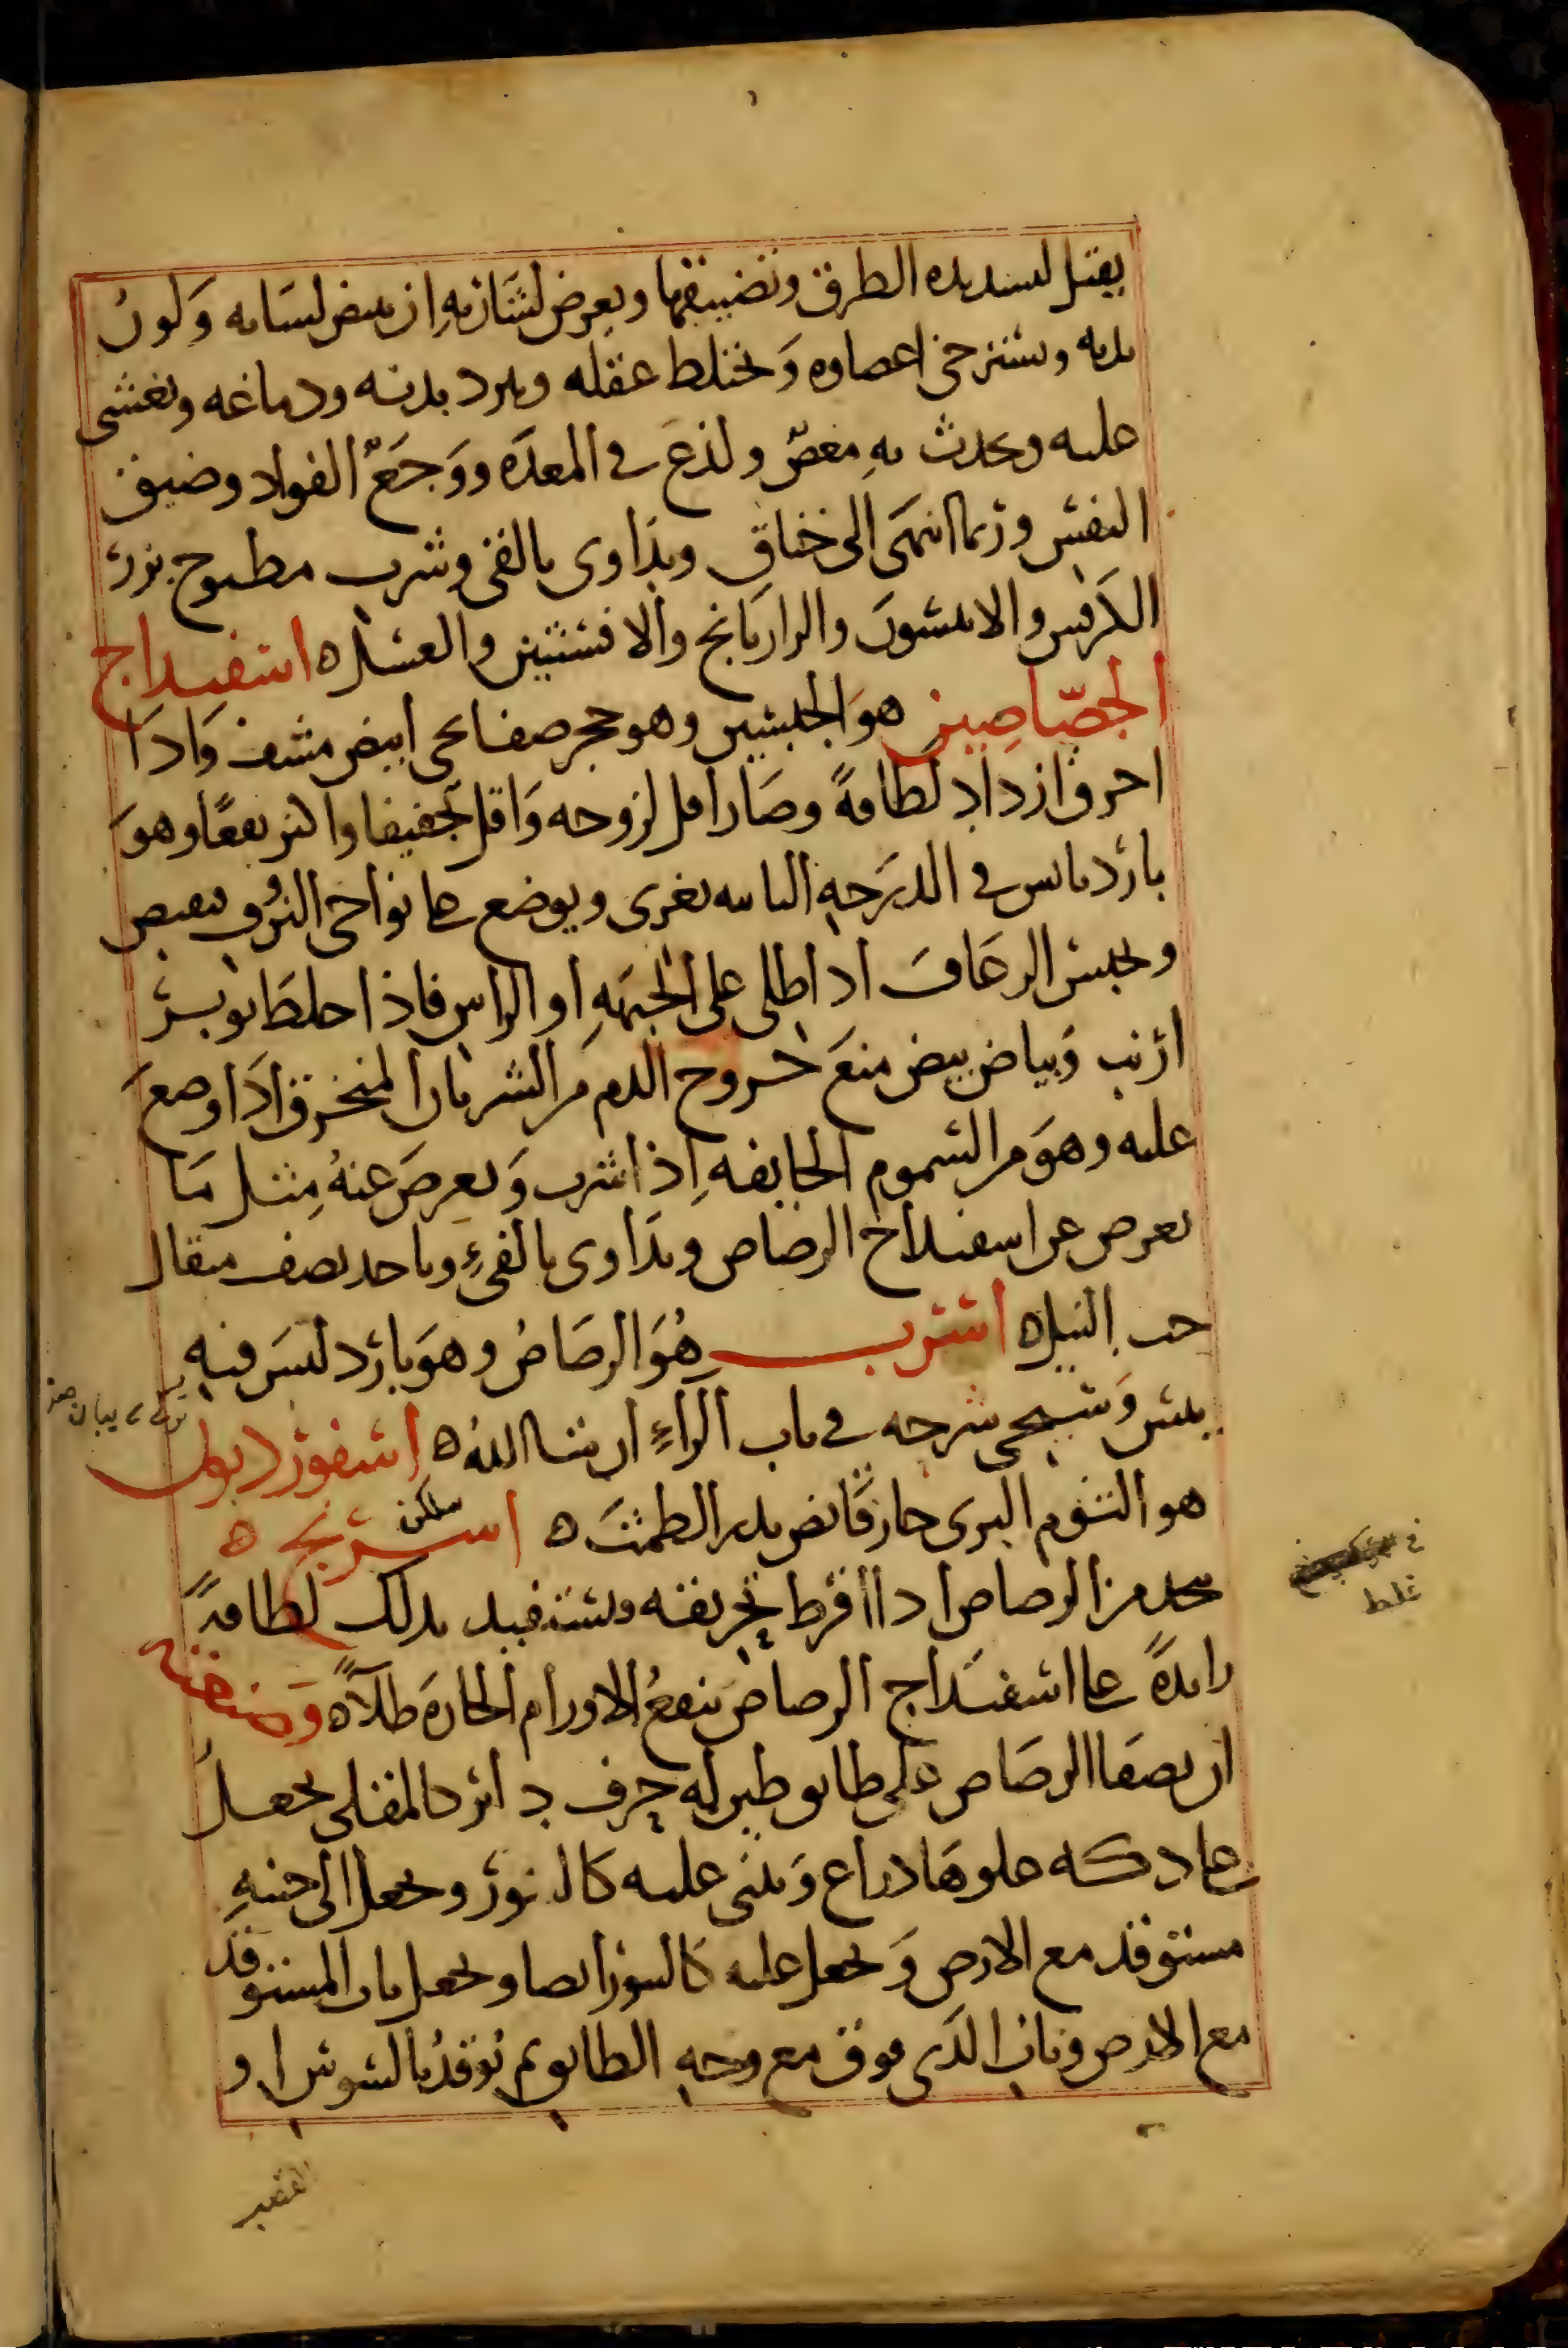 يقتل لتسديده الطرق وتضييقها ويعرض لشاربهِ ان يبيض لسَانه وَلونُ
بدنه ويسترخى اعصاوه وَيختلط عقله ويبرد بدنه ودماغه ويغشى
عليه ويحدث بهِ مغصٌ ولذعَ فى المعدَه ووَجَعٌ الفواد وضيق
النفس وربما انتهَى الى خناق ويدَاوى بالقى وشرب مطبوخ بزر
الكرَفس والانيسُون والرازيَانج والافسنتين والعسل ه اسفيداج
الجصّاصِين هوَ الجبسين وهو حجر صفايحى ابيض مشف وَاذَا
احرق ازدَاد لطافةً وصَار اقل لزوجه وَاقل تجفيفا واكثر نفعًا وهوَ
باردٌ يابس فى الدرَجهِ الثانيه يغرى ويوضع على نواحى النزف فيقبض
ويحبس الرعَاف اذا طلى على الجبهَهِ او الراس فاذا خلط بوبر
ارنب وَبياض بيض منعَ خروج الدم من الشريان المنخرق اذَا وضعَ
عليه وهوَ من السموم الخانقهِ اِذا شرب وَيعرضَ عنهُ مِثل مَا
يعرض عن اسفيداج الرصَاص ويدَاوى بالقىءِ وياخذ نصف مثقال
حب النيل ه اسرب هُوَ الرصَاصُ وهوَ باردٌ ليسَ فيهِ
يبس وَسيجى شرحه فى باب الراءِ ان شا اللهُ ه اسقورديون
هو الثوم البرى حار قابض يدر الطمث ه اسرنج ه
يتخذ من الرصاص اذا افرط تحريقه ويستفيد بذلك لطافةً
زايدةً على اسفيدَاج الرصاص ينفعُ الاورام الحارَة طلاًه وَصنعته
ان يصفا الرصَاص على طابق طين له حرف دائر كالمقلى يجعلُ
على دكه علوهَا ذراع وَيبنى عليه كالتنور ويجعل الى جنبهِ
مستوقد مع الارض وَيجعل عليه كالتنور ايضا ويجعل باب المستوقد
مع الارض وباب الذى فوق مع وجهِ الطابق ثم يُوقدُ بالشوش او
سلقن
غلط
القصب